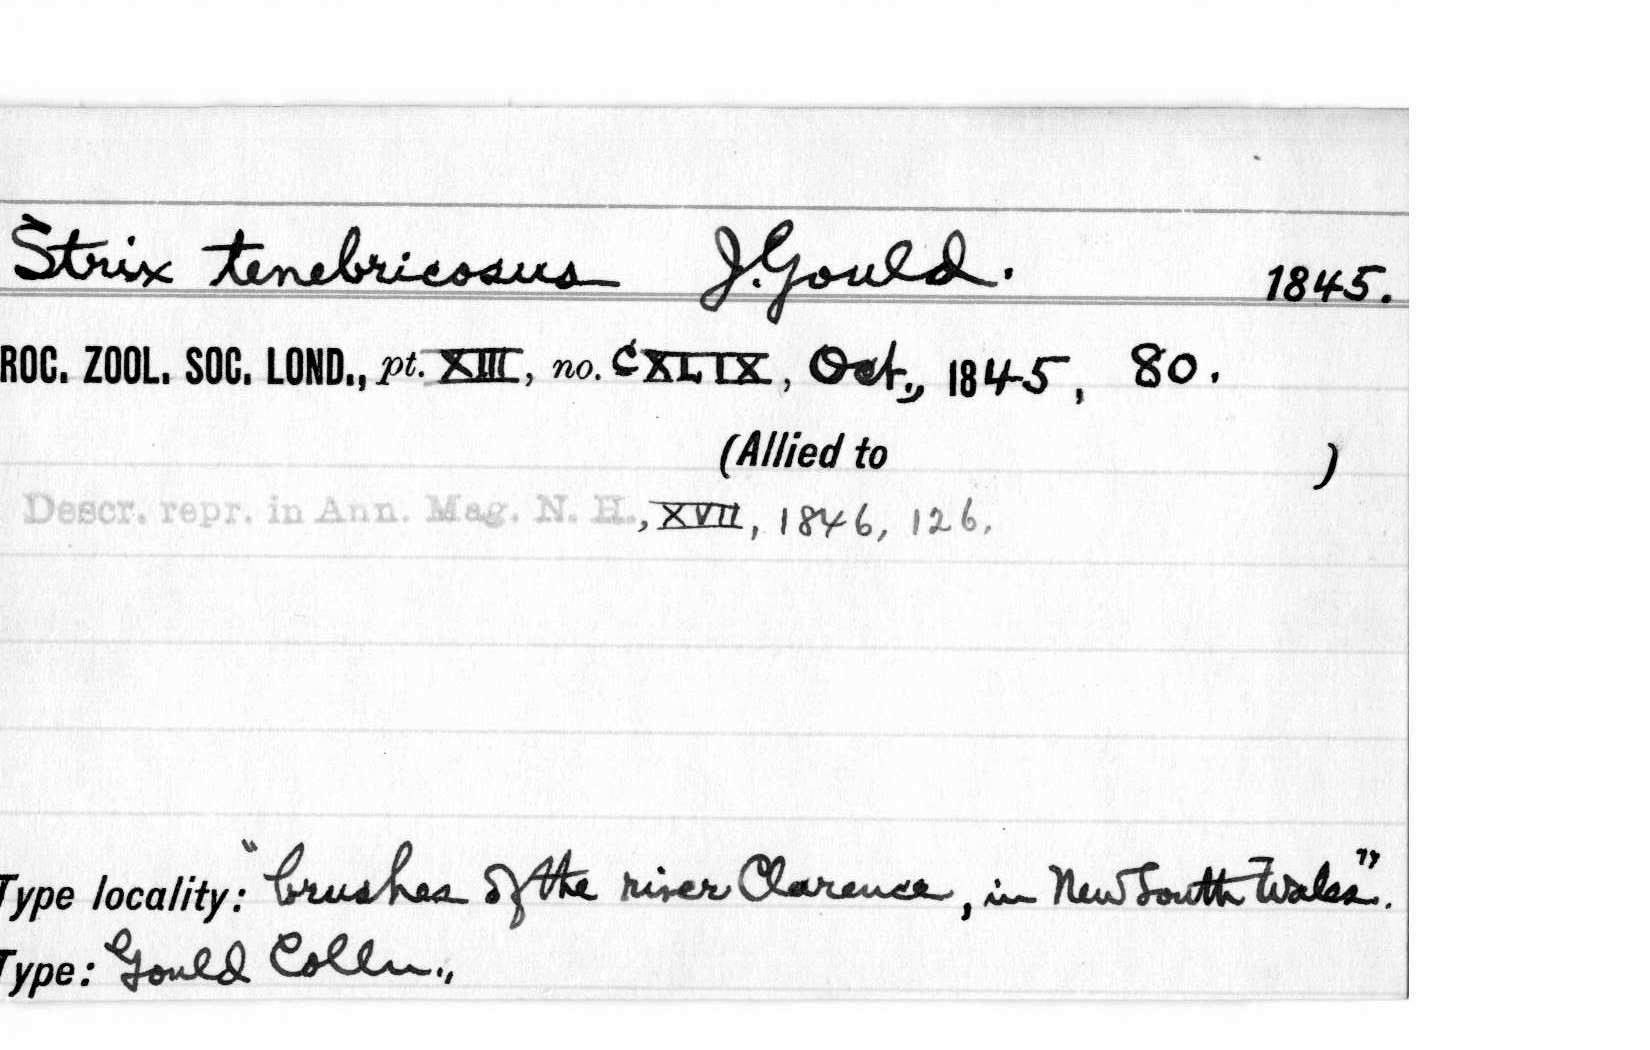 Strix tenebricosus J. Gould. 1845.
ROC. ZOOL. SOC. LOND., pt. XIII, no. CXLIX, Oct., 1845, 80.
(Allied to )
Descr. repr. in Ann. Mag. N. H., XVII, 1846, 126.
Type locality: "brushes of the river Clarence, in New South Wales".
Type: Gould Colln.,